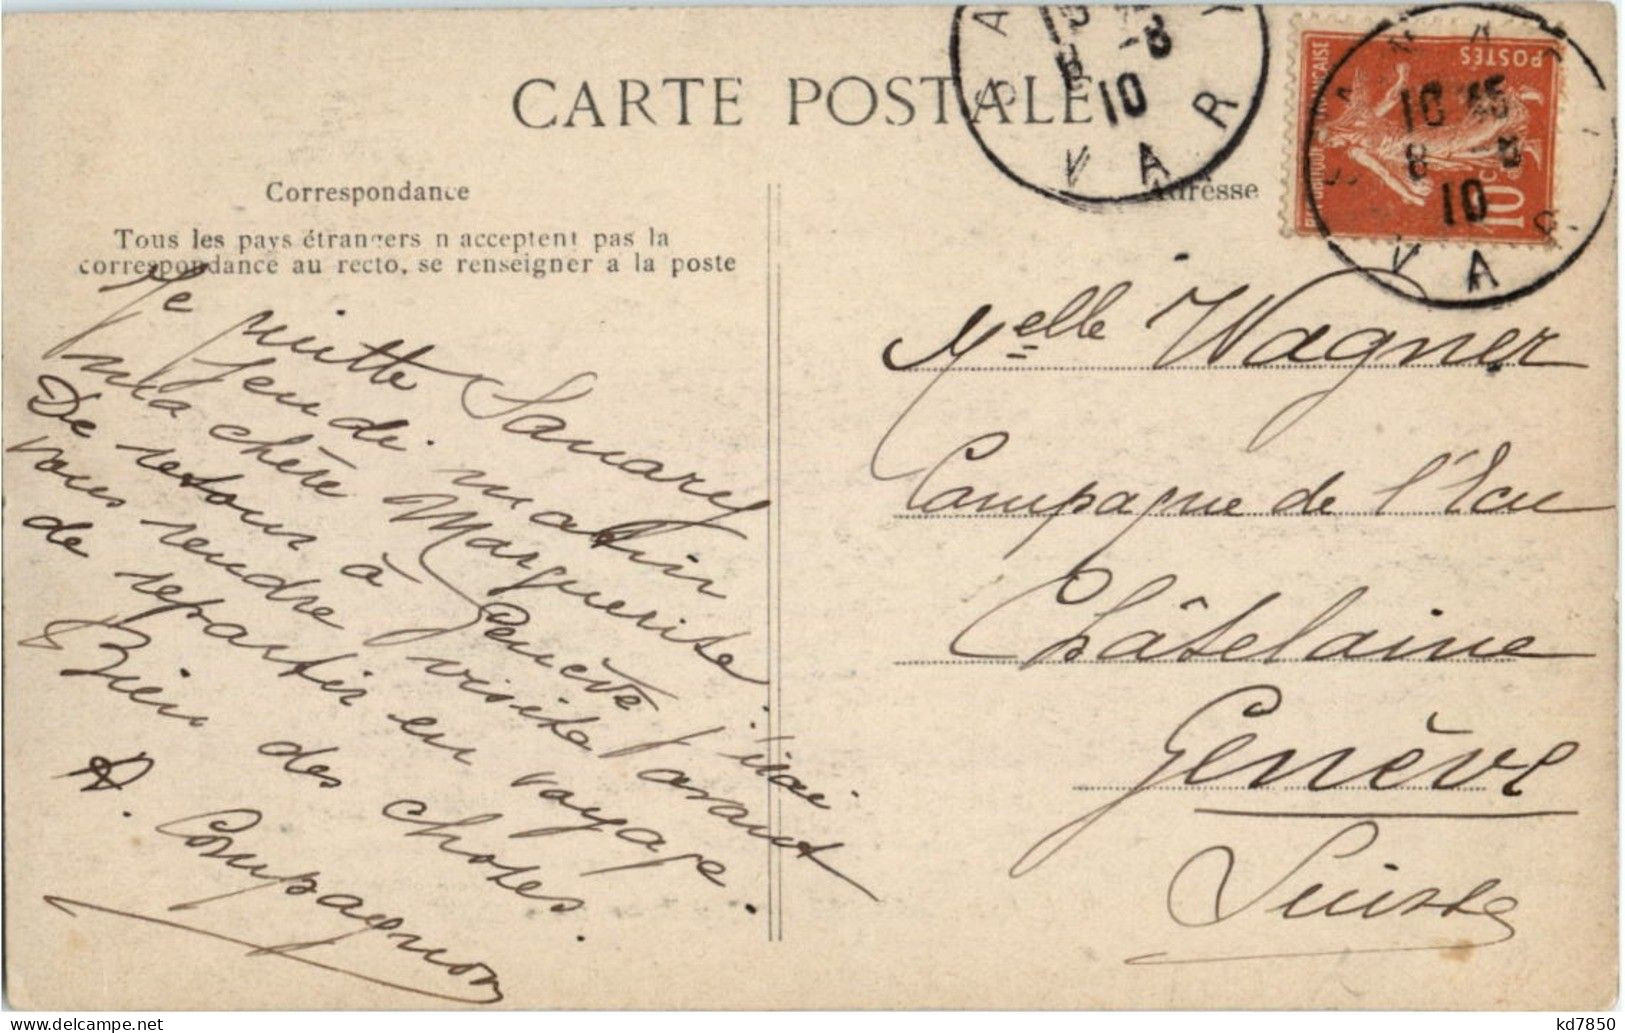 CARTE POSTALE
Correspondance
Tous les pays étrangers n acceptent pas la
correspondance au recto, se renseigner a la poste
Je quitte Sanary
Jeudi matin
ma chère Marguerite
De retour à Genève j'irai
vous rendre visite avant
de repartir en voyage.
Bien des choses.
A. Compagnon
SANARY
8 -8
10
VAR
Adresse
REPUBLIQUE FRANÇAISE
POSTES
10 c
SANARY
10 45
8 -8
10
VAR
Melle Wagner
Campagne de l'Ecu
Châtelaine
Genève
Suisse
kd7850